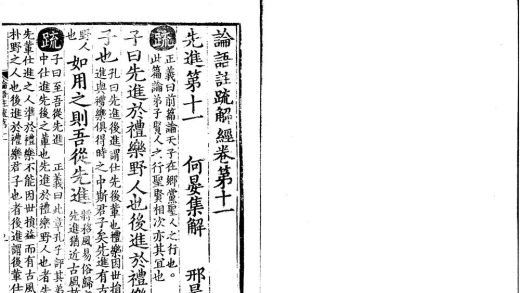 論語註疏解經卷第十一
先進第十一 何晏集解 邢昺
疏 正義曰前篇論夫子在鄉黨聖人之行也
此篇論弟子賢人之行聖賢相次亦其宜也
子曰先進於禮樂野人也後進於禮樂君
子也 孔曰先進後進謂仕先後輩也禮樂因世損
進與禮樂俱得時之中斯君子矣先進有古
野人也 如用之則吾從先進 將移風易俗歸之
先進猶近古風故
疏 子曰至吾從先進 正義曰此章孔子評其弟
中仕進先後之輩也先進於禮樂野人也者
先輩仕進之人準於禮樂不能因世損益而有古風
朴野之人也後進於禮樂君子也者後進謂後輩仕